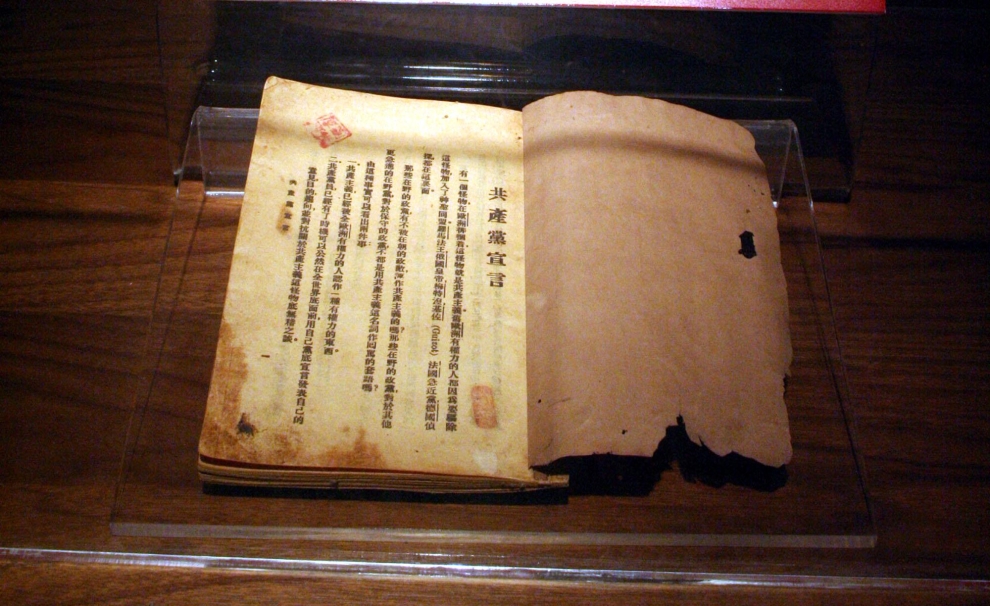 共產黨宣言
有一個怪物，在歐洲徘徊着，這怪物就是共產主義。舊歐洲有權力的人都因爲要驅除
這怪物，加入了神聖同盟。羅馬法王，俄國皇帝，梅特涅，基佐（Guizot）法國急近黨，德國偵
探，都在這裏面。
那些在野的政黨，有不被在朝的政敵，誣作共產主義的嗎？那些在野的政黨，對於其他
更急進的在野黨，對於保守的政黨，不都是用共產主義這名詞作回罵的套語嗎？
由這種事實可以看出兩件事：
一、共產主義，已經被全歐洲有權力的人認作一種有權力的東西。
二、共產黨員，已經有了時機可以公然在全世界底面前，用自己黨底宣言發表自己的
黨見目的趨向，並對抗關於共產主義這怪物底無稽之談。
共產黨宣言
一